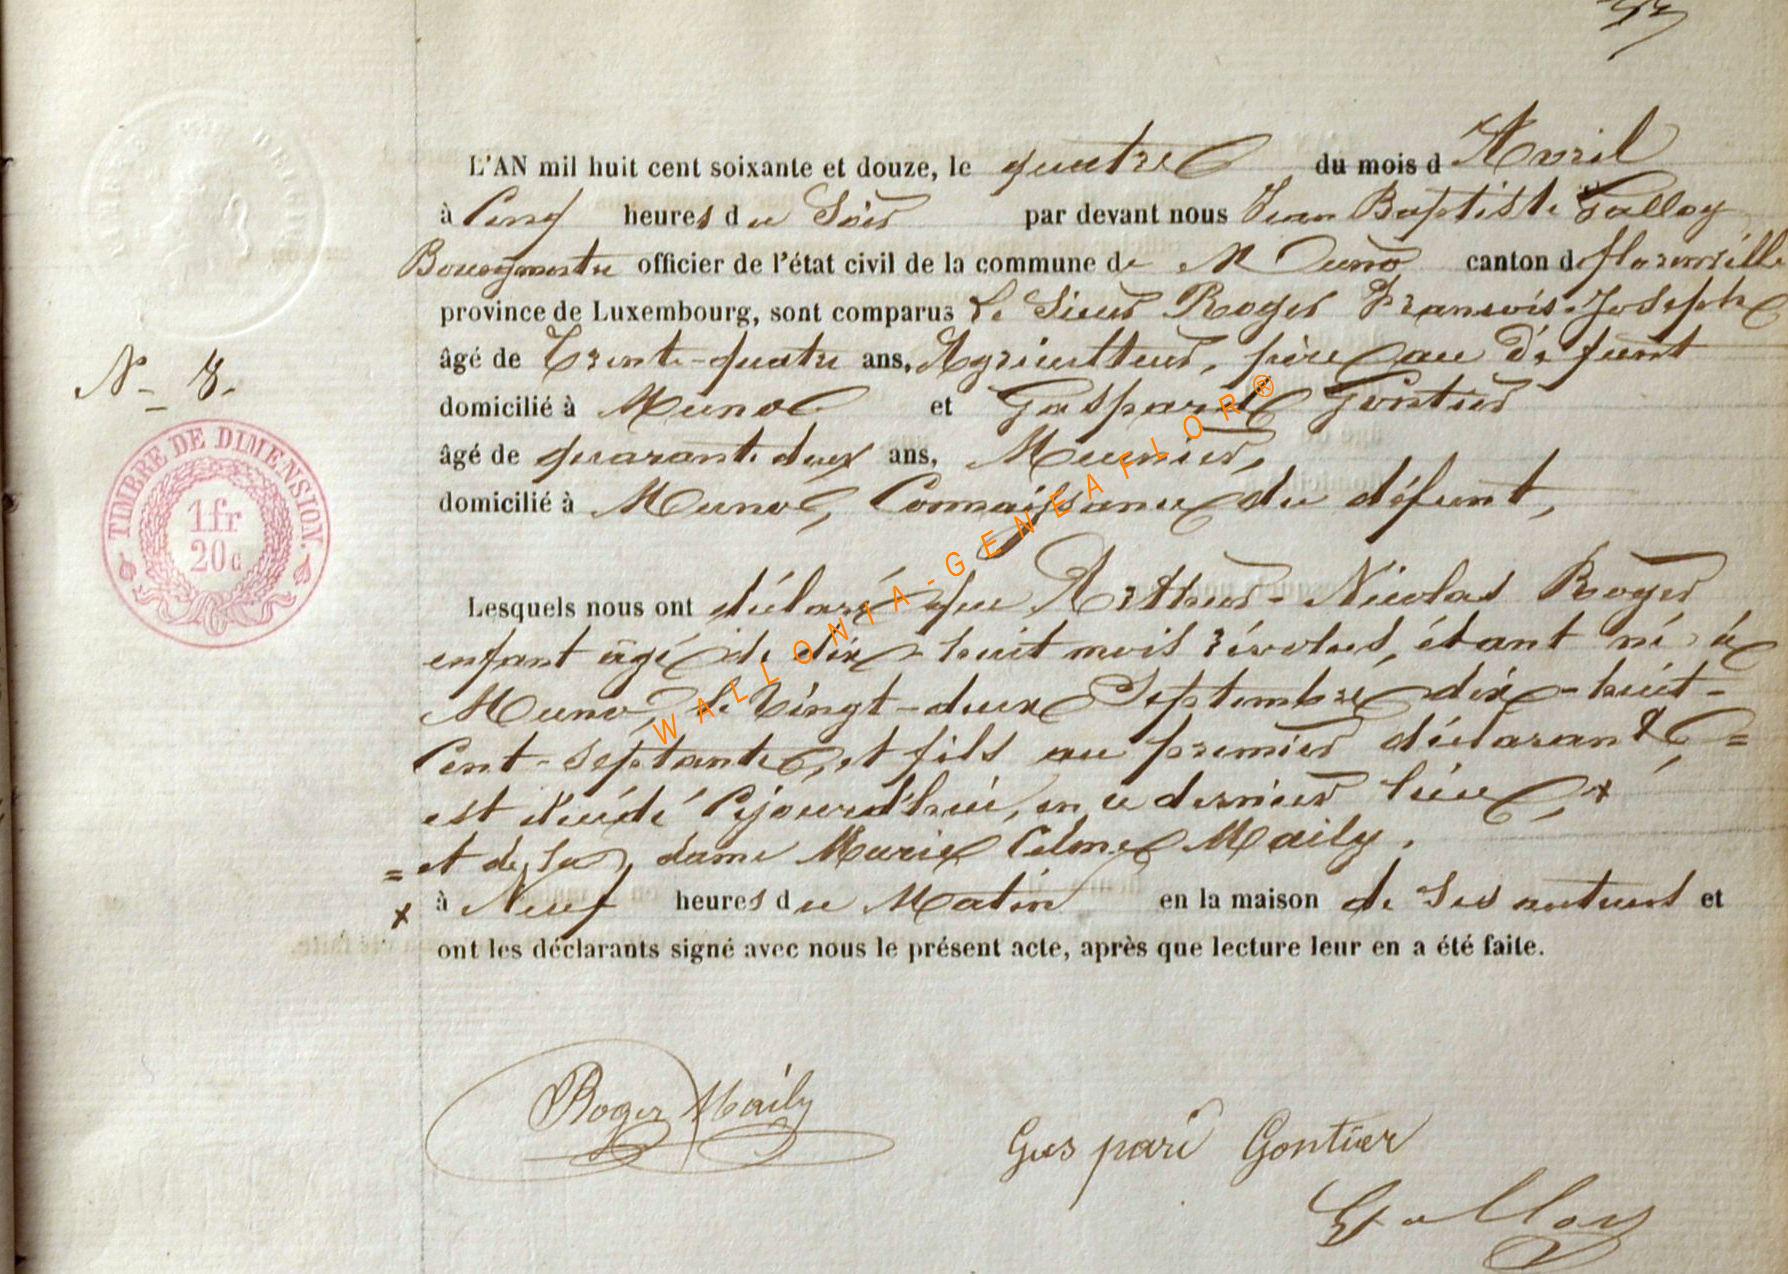 L'AN mil huit cent soixante et douze, le quatre du mois d Avril
à Cinq heures du Soir par devant nous Jean Baptiste Galloy
Bourgmestre officier de l'état civil de la commune de Muno canton de florenville
province de Luxembourg, sont comparus Le Sieur Roger François-Joseph
âgé de Trente-quatre ans, Agriculteur, père au défunt
domicilié à Muno et Gaspard Gontier
âgé de quarante deux ans, Meunier,
domicilié à Muno, Connaissance du défunt,
N- 8.
TIMBRE DE DIMENSION.
1fr
20c
Lesquels nous ont déclaré que Arthur-Nicolas Roger
enfant âgé de dix-huit mois révolus, étant né à
Muno, le Vingt-deux Septembre dix-huit-
Cent-septante, et fils au premier déclarant, =
est décédé Cejourd'hui, en ce dernier lieu, x
= et de la dame Marie Mailly.
x à Neuf heures du Matin en la maison de ses auteurs et
ont les déclarants signé avec nous le présent acte, après que lecture leur en a été faite.
Roger Maily
Gaspard Gontier
Galloy
WALLONIA-GENEAFLOR®